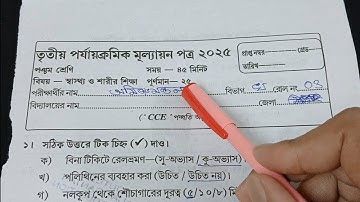 তৃতীয় পর্যায়ক্রমিক মূল্যায়ন পত্র ২০২৫
প্রাপ্ত নম্বর গ্রেড
তারিখ
পঞ্চম শ্রেণি সময় — ৪৫ মিনিট
বিষয় — স্বাস্থ্য ও শারীর শিক্ষা পূর্ণমান — ২৫
পরীক্ষার্থীর নাম বিভাগ রোল নং
বিদ্যালয়ের নাম জেলা
('CCE' পদ্ধতি
১। সঠিক উত্তরে টিক চিহ্ন (✓) দাও।
ক) বিনা টিকিটে রেলভ্রমণ—(সু-অভ্যাস / কু-অভ্যাস)
খ) পলিথিনের ব্যবহার করা (উচিত / উচিত নয়)।
গ) নলকূপ থেকে শৌচাগারের দূরত্ব (৫/১০/৮)